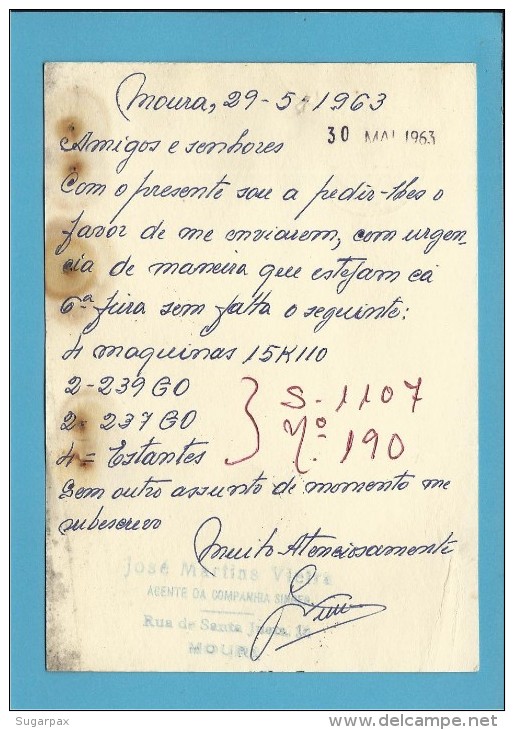 Moura, 29-5-1963
30 MAI 1963
Amigos e senhores
Com o presente sou a pedir-lhes o
favor de me enviarem, com urgen-
cia de maneira que estejam cá
6ª feira sem falta o seguinte:
4 maquinas 15K110
2-239 GO
2- 237 GO
4 = Estantes
S-1107
Nº 190
Sem outro assunto de momento me
subescrevo
Muito Atenciosamente
José Martins Vieira
AGENTE DA COMPANHIA SINGER
Rua de Santa Justa,
MOURA
Sugarpax
www.delcampe.net